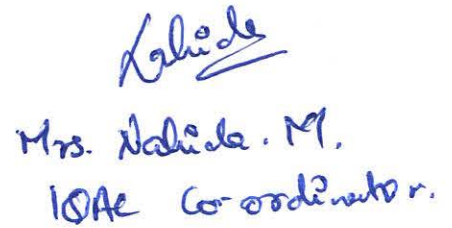 Nahida
Mrs. Nahida. M.
IQAC Co-ordinator.